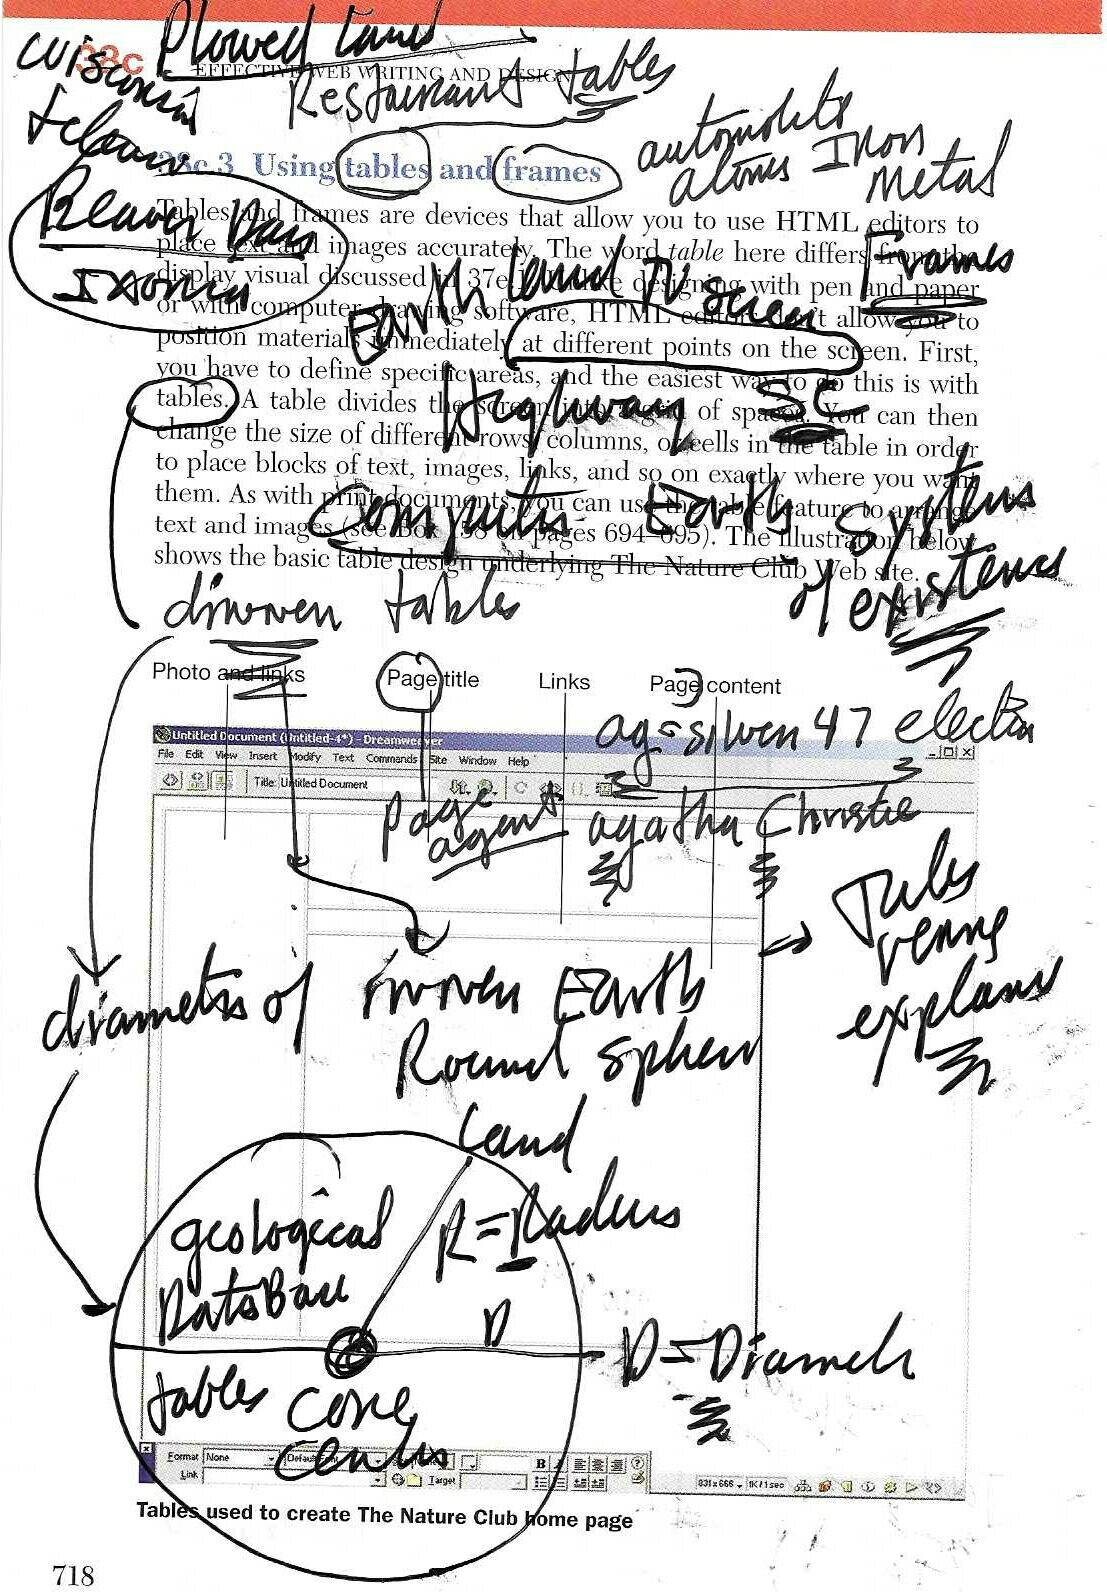 Plowed Land
EFFECTIVE WEB WRITING AND DESIGN
Restaurant tables
automobile
atoms Iron
Metal
38c.3 Using tables and frames
Beaver Dam
Ixonia
Tables and frames are devices that allow you to use HTML editors to
place text and images accurately. The word table here differs from the
display visual discussed in 37e. designing with pen and paper
or with computer drawing software, HTML editors don't allow you to
position materials immediately at different points on the screen. First,
you have to define specific areas, and the easiest way to do this is with
tables. A table divides the screen into a grid of spaces. You can then
change the size of different rows, columns, or cells in the table in order
to place blocks of text, images, links, and so on exactly where you want
them. As with print documents, you can use the table feature to arrange
text and images (see Box 138 on pages 694–695). The illustration below
shows the basic table design underlying The Nature Club Web site.
Frames
Earth Land
Highway
Earth systems
of existence
tables
Photo and links Page title Links Page content
ag=silver 47 electron
Untitled Document (Untitled-4*) - Dreamweaver
File Edit View Insert Modify Text Commands Site Window Help
Title: Untitled Document
page
agent
agatha Christie
Earth
Round
Land
of
R=Radius
geological
DataBase
D
D=Diameter
tables
core
Format None
Link
Target
B
831x666 1K/1sec
Tables used to create The Nature Club home page
718